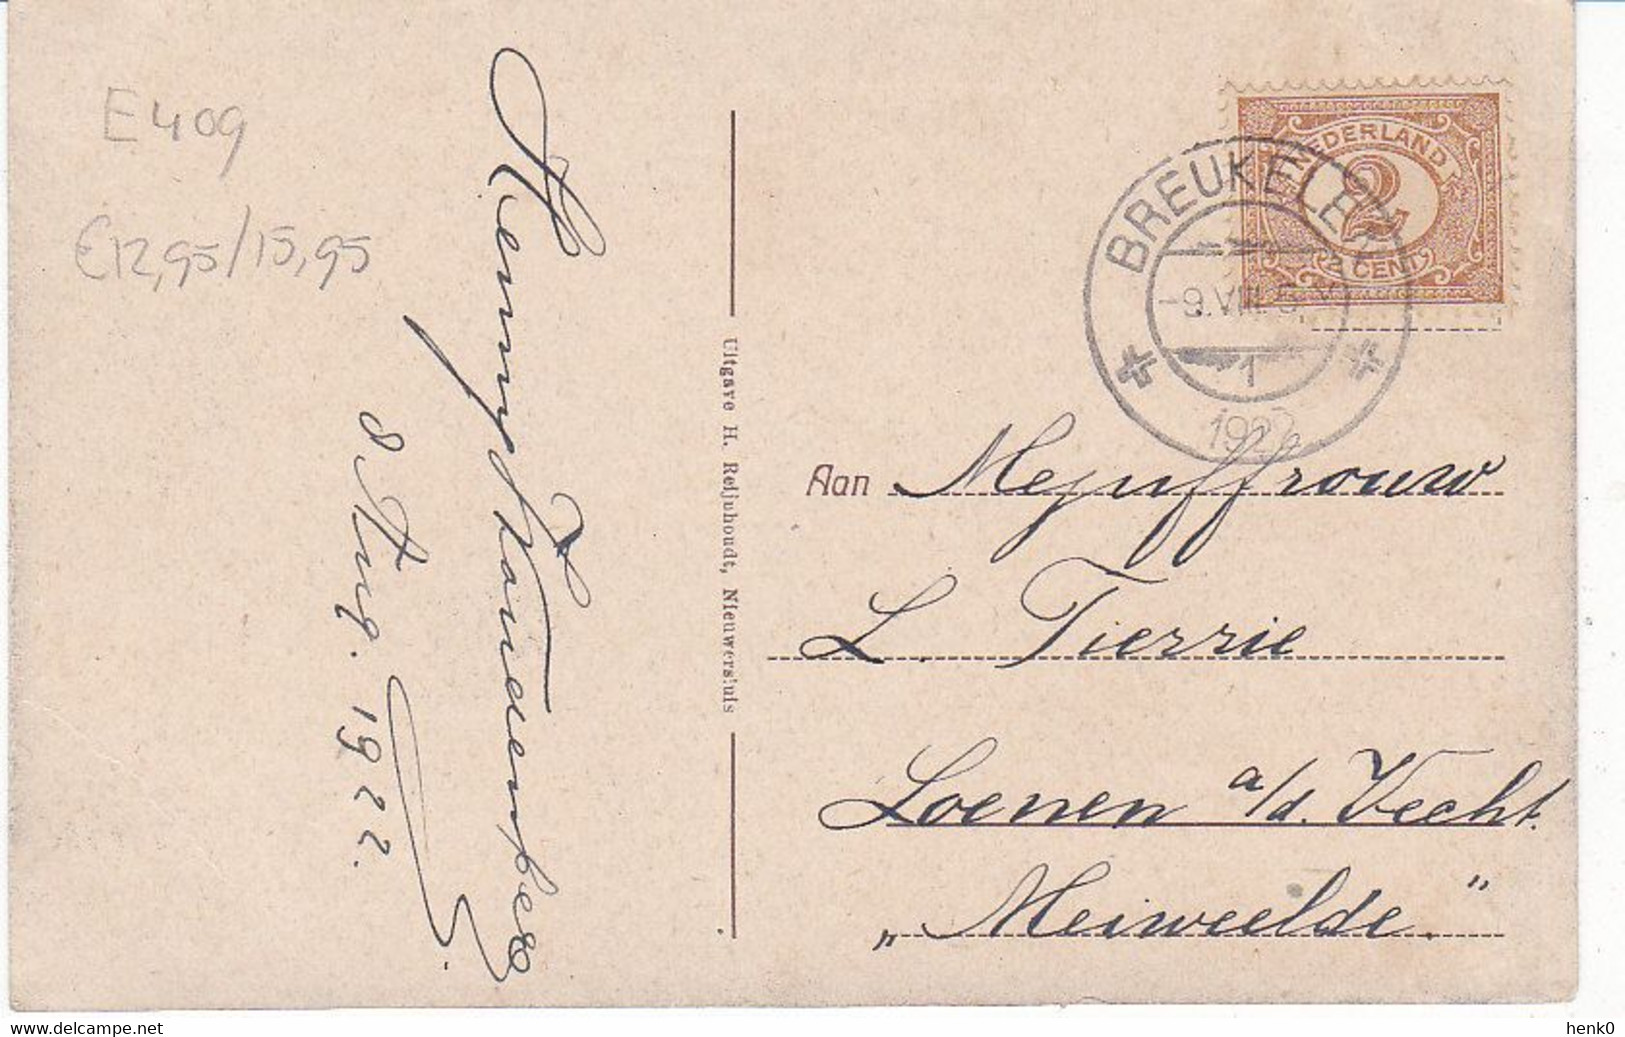 E409
€12,95/15,95
Henny Kouwenberg
8 Aug. 1922.
Uitgave H. Reijnhoudt, Nieuwersluis
NEDERLAND
2
2 CENT
BREUKELEN
-9.VIII. 6-
1
1922
Aan Mejuffrouw
L. Tierrie
Loenen a/d. Vecht.
„Meiweelde."
delcampe.net
henk0